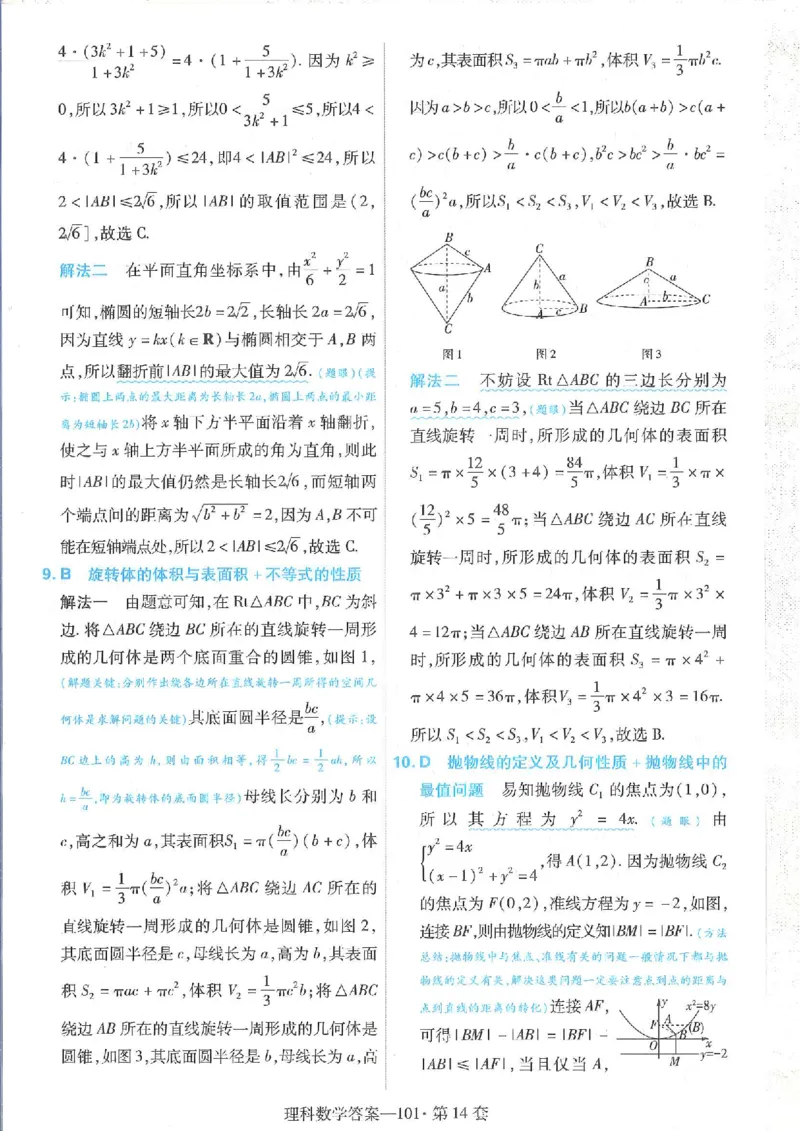 4·(3k²+1+5)/(1+3k²)=4·(1+5/(1+3k²)). 因为 k²≥
0,所以 3k²+1≥1,所以0<5/(3k²+1)≤5,所以4<
4·(1+5/(1+3k²))≤24,即4<|AB|²≤24,所以
2<|AB|≤2√6,所以|AB|的取值范围是(2,
2√6],故选 C.
解法二 在平面直角坐标系中,由x²/6+y²/2=1
可知,椭圆的短轴长2b=2√2,长轴长 2a=2√6,
因为直线 y=kx(k∈R)与椭圆相交于 A,B 两
点,所以翻折前|AB|的最大值为 2√6.(题眼)(提
示:椭圆上两点的最大距离为长轴长 2a,椭圆上两点的最小距
离为短轴长 2b)将 x 轴下方半平面沿着 x 轴翻折,
使之与 x 轴上方半平面所成的角为直角,则此
时|AB|的最大值仍然是长轴长2√6,而短轴两
个端点间的距离为√(b²+b²)=2,因为 A,B 不可
能在短轴端点处,所以 2<|AB|≤2√6,故选 C.
9. B 旋转体的体积与表面积+不等式的性质
解法一 由题意可知,在 Rt△ABC 中,BC 为斜
边.将△ABC 绕边 BC 所在的直线旋转一周形
成的几何体是两个底面重合的圆锥,如图 1,
(解题关键:分别作出绕各边所在直线旋转一周所得的空间几
何体是求解问题的关键)其底面圆半径是bc/a,(提示:设
BC 边上的高为 h,则由面积相等,得1/2bc=1/2ah,所以
h=bc/a,即为旋转体的底面圆半径)母线长分别为 b 和
c,高之和为 a,其表面积S₁=π(bc/a)(b+c),体
积 V₁=1/3π(bc/a)²a;将△ABC 绕边 AC 所在的
直线旋转一周形成的几何体是圆锥,如图 2,
其底面圆半径是 c,母线长为 a,高为 b,其表面
积 S₂=πac+πc²,体积 V₂=1/3πc²b;将△ABC
绕边 AB 所在的直线旋转一周形成的几何体是
圆锥,如图 3,其底面圆半径是 b,母线长为 a,高
为 c,其表面积 S₃=πab+πb²,体积 V₃=1/3πb²c.
因为 a>b>c,所以 0<b/a<1,所以b(a+b)>c(a+
c)>c(b+c)>b/a·c(b+c),b²c>bc²>b/a·bc²=
(bc/a)²a,所以S₁<S₂<S₃,V₁<V₂<V₃,故选 B.
B c A a b C
C b a A c B
B c a A b C
图1 图2 图3
解法二 不妨设 Rt△ABC 的三边长分别为
a=5,b=4,c=3,(题眼)当△ABC 绕边 BC 所在
直线旋转一周时,所形成的几何体的表面积
S₁=π×12/5×(3+4)=84/5π,体积 V₁=1/3×π×
(12/5)²×5=48/5π;当△ABC 绕边 AC 所在直线
旋转一周时,所形成的几何体的表面积 S₂=
π×3²+π×3×5=24π,体积 V₂=1/3π×3²×
4=12π;当△ABC 绕边 AB 所在直线旋转一周
时,所形成的几何体的表面积 S₃=π×4²+
π×4×5=36π,体积V₃=1/3π×4²×3=16π.
所以 S₁<S₂<S₃,V₁<V₂<V₃,故选 B.
10. D 抛物线的定义及几何性质+抛物线中的
最值问题 易知抛物线 C₁ 的焦点为(1,0),
所以其方程为 y²=4x.(题眼)由
{y²=4x
(x-1)²+y²=4
,得 A(1,2).因为抛物线 C₂
的焦点为 F(0,2),准线方程为 y=-2,如图,
连接 BF,则由抛物线的定义知|BM|=|BF|.(方法
总结:抛物线中与焦点、准线有关的问题一般情况下都与抛
物线的定义有关,解决这类问题一定要注意点到点的距离与
点到直线的距离的转化)连接 AF,
可得|BM|-|AB|=|BF|-
|AB|≤|AF|,当且仅当 A,
y x²=8y
F A B (B)
O x
M y=-2
理科数学答案—101·第 14 套